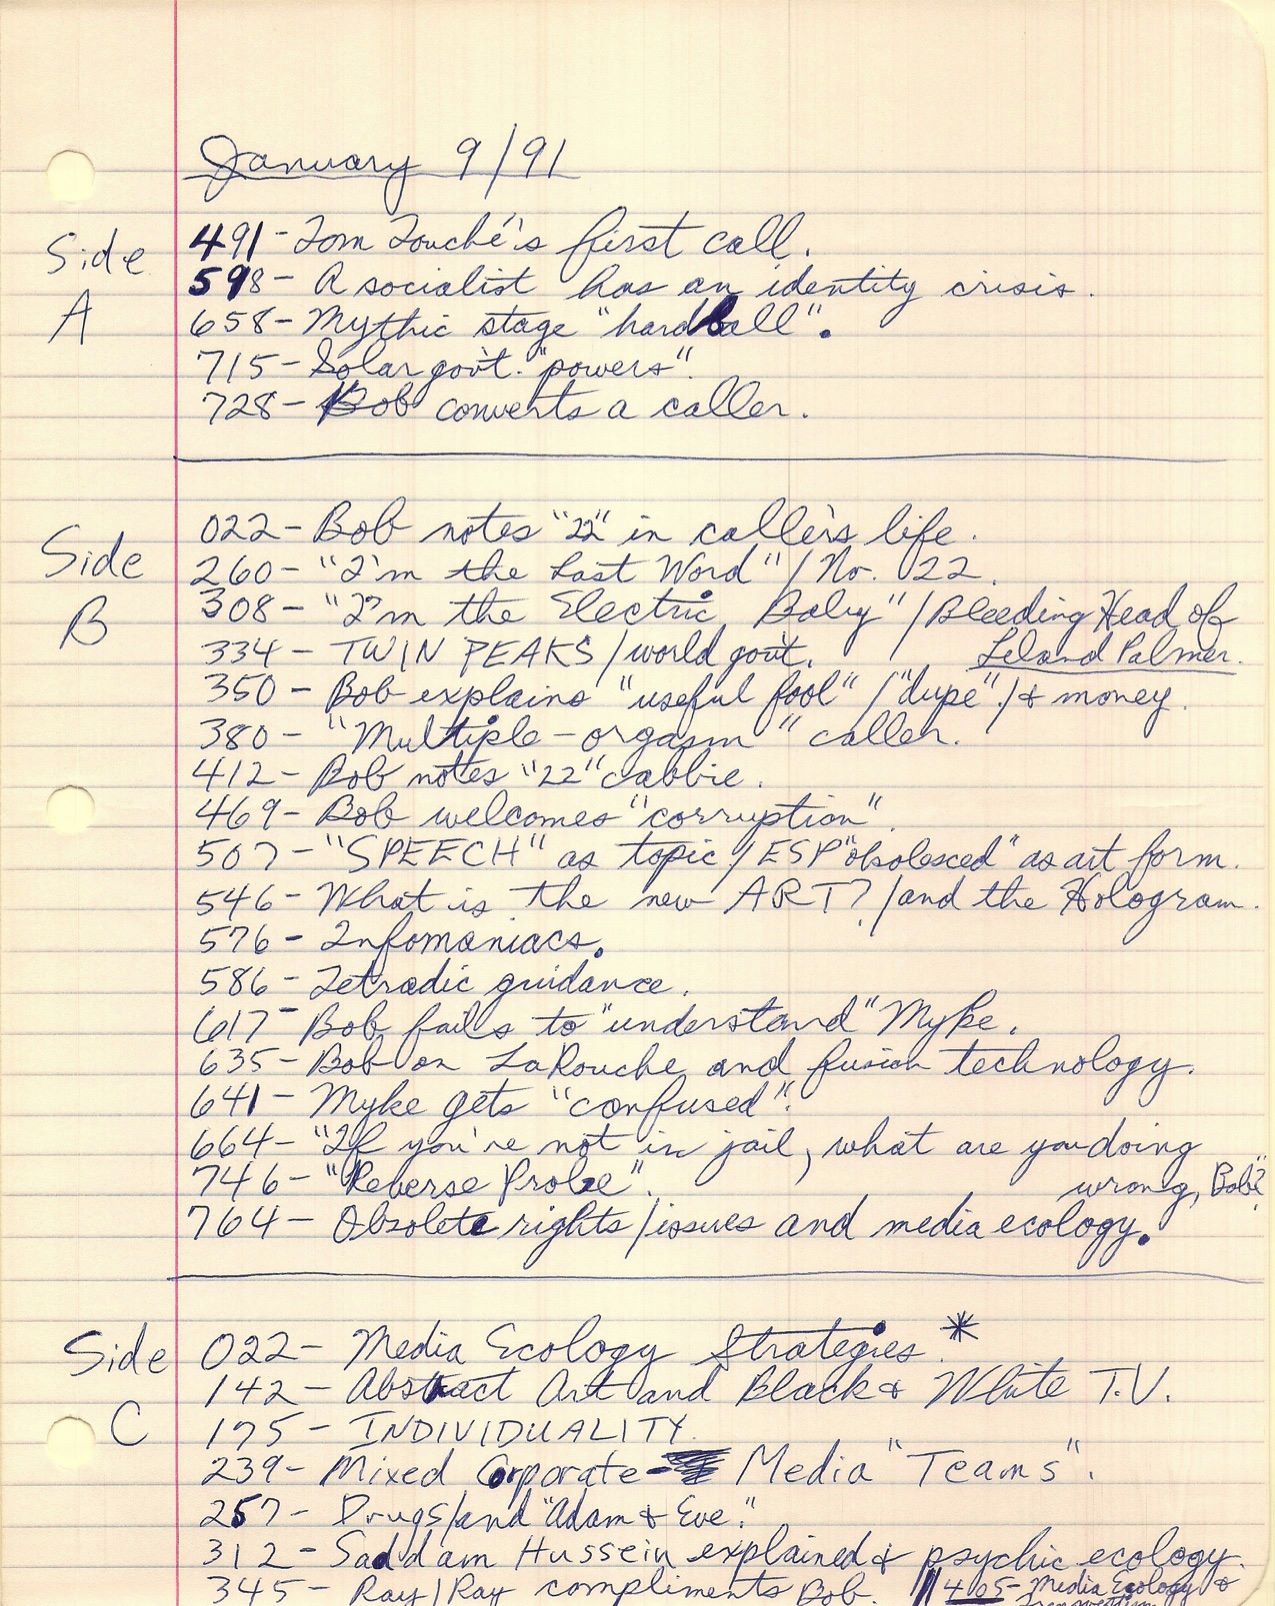 January 9/91
Side A
491- Tom Touché's first call.
598- A socialist has an identity crisis.
658- Mythic stage "hardball".
715- Solar gov't. "powers".
728- Bob converts a caller.
Side B
022- Bob notes "22" in caller's life.
260- "I'm the Last Word" / No. 022.
308- "I'm the Electric Baby" / Bleeding Head of
Leland Palmer.
334- TWIN PEAKS / world gov't.
350- Bob explains "useful fool" / "dupe" / & money.
380- "Multiple-orgasm" caller.
412- Bob notes "22" cabbie.
469- Bob welcomes "corruption".
507- "SPEECH" as topic / ESP "obsolesced" as art form.
546- What is the new ART? / and the Hologram.
576- Infomaniacs.
586- Tetradic guidance.
617- Bob fails to "understand" Myke.
635- Bob on LaRouche and fusion technology.
641- Myke gets "confused".
664- "If you're not in jail, what are you doing
wrong, Bob?"
746- "Reverse Probe".
764- Obsolete rights / issues and media ecology.
Side C
022- Media Ecology Strategies. *
142- Abstract Art and Black & White T.V.
175- INDIVIDUALITY.
239- Mixed Corporate- Media "Teams".
257- Drugs / and "Adam & Eve."
312- Saddam Hussein explained & psychic ecology.
345- Ray / Ray compliments Bob. // 405- Media Ecology &